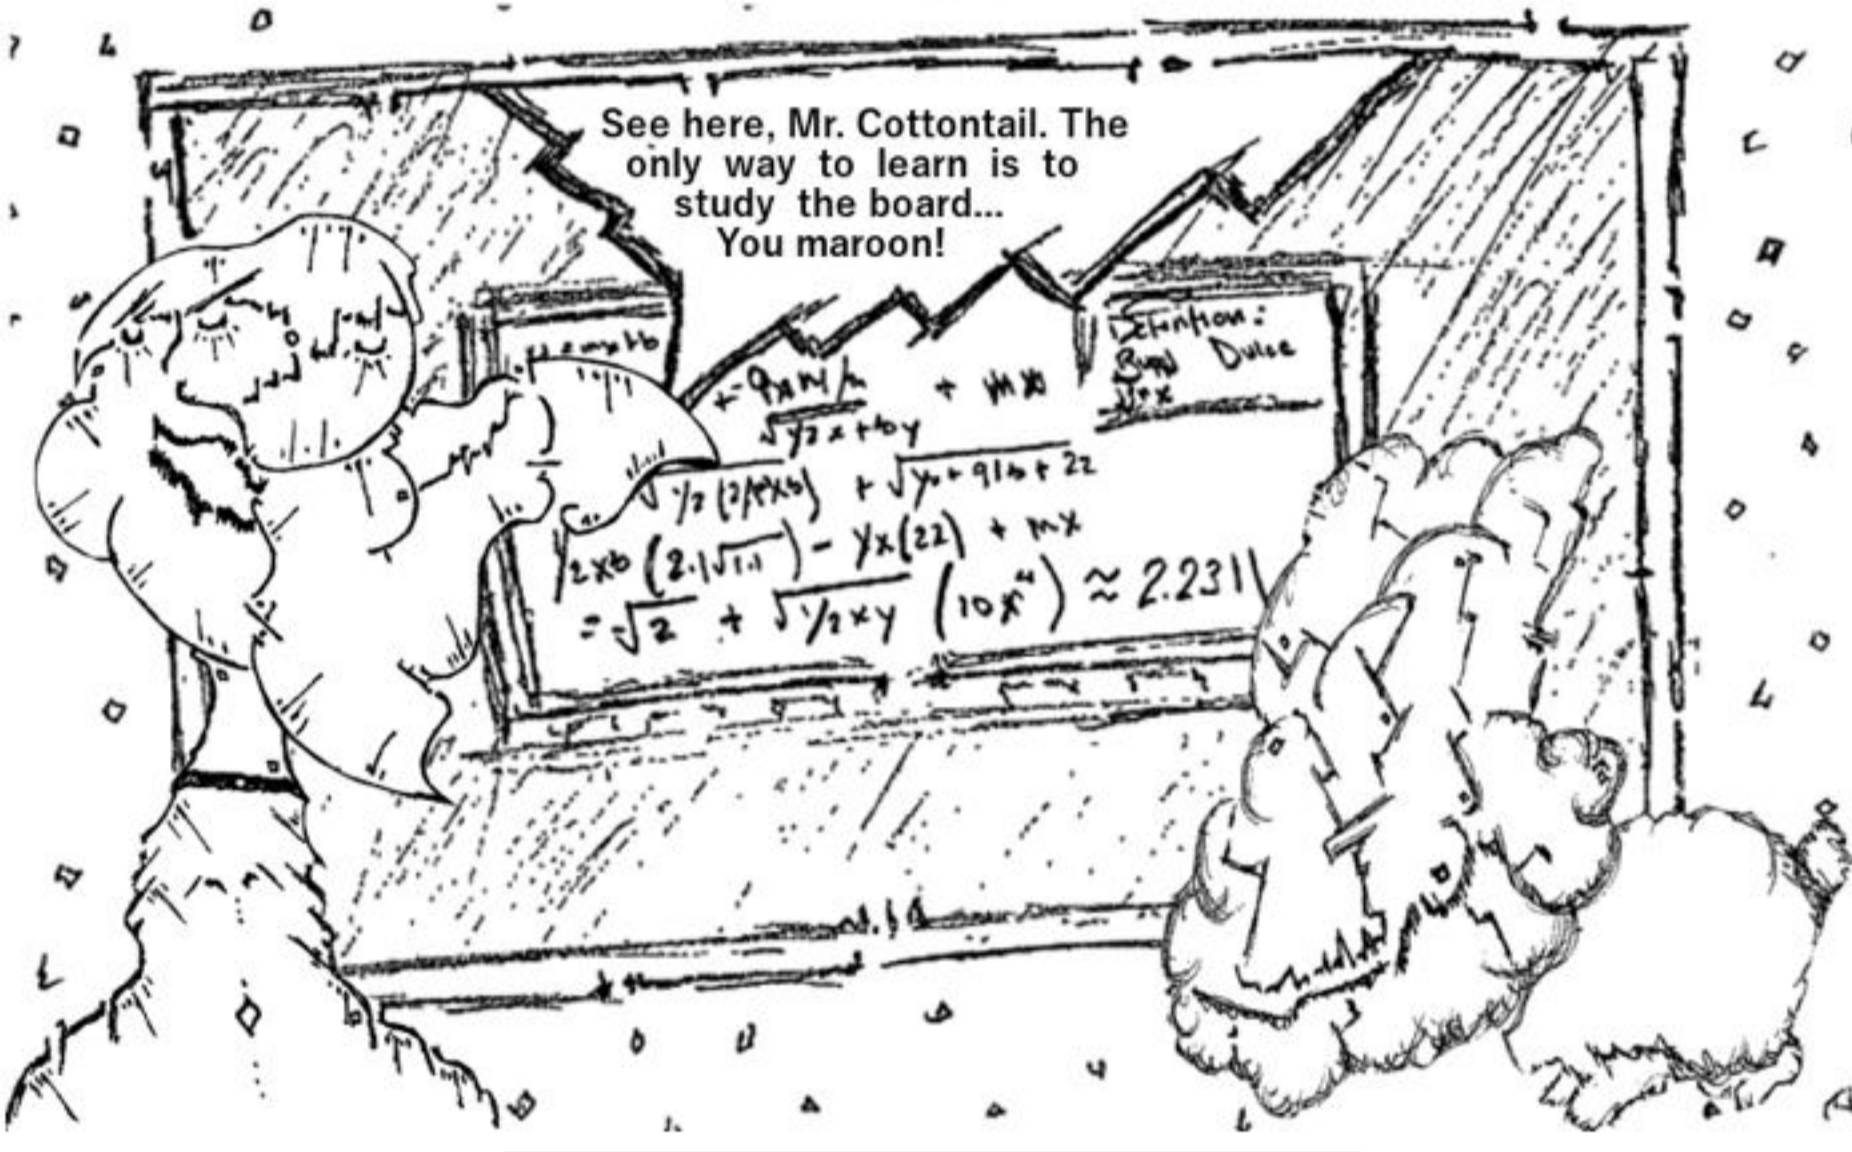 See here, Mr. Cottontail. The
only way to learn is to
study the board...
You maroon!
Detention:
+ mx
√y2x+by
√1/2 + √yx+91b+22
2xb (2.1√1.1) - yx(22) + mx
=√2 + √1/2xy (10x") ≈ 2.2311